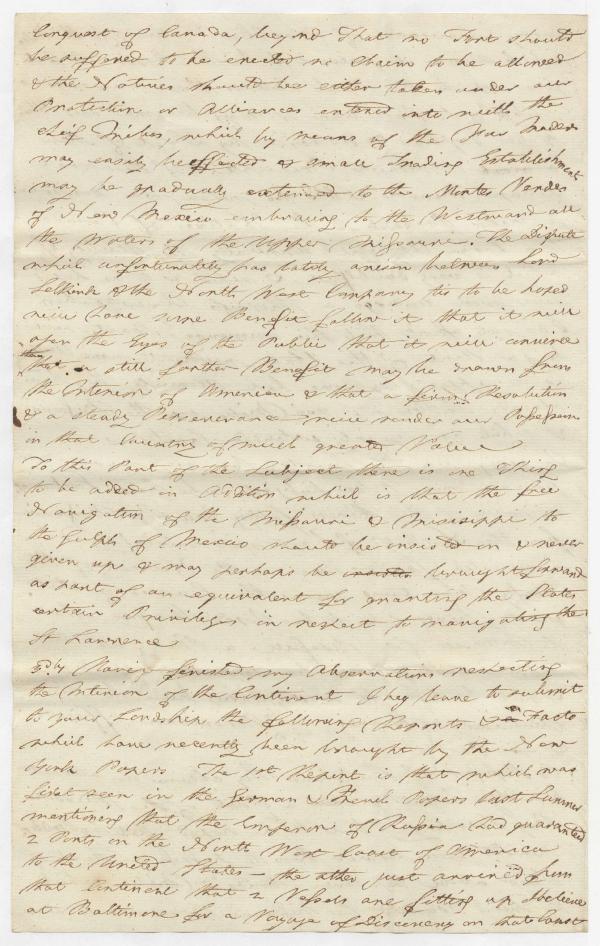 Conquest of Canada, beyond that no Fort should
be suffered to be erected no Claim to be allowed
& the Natives should be either taken under our
Protection or Alliances entered into with the
chief Tribes, which by means of the Fur Traders
may easily be effected & small Trading Establishment
may be gradually extended to the Montes Verdes
of New Mexico embracing to the Westward all
the Waters of the Upper Missouri. The Dispute
which unfortunately has lately arisen between Lord
Selkirk & the North West Company tis to be hoped
will have some Benefit follow it that it will
open the Eyes of the Public that it will convince
them
that a still farther Benefit may be drawn from
the Interior of America & that a firm Resolution
& a steady Perseverance will render our Possession
in that Country of much greater Value
To this Part of the Subject there is one Thing
to be added in Addition which is that the free
Navigation of the Missouri & Misisippi to
the Gulph of Mexico should be insisted on & never
given up & may perhaps be insisted brought forward
as part of an equivalent for granting the States
certain Privileges in respect to navigating the
St Lawrence
3dly Having finished my Observations respecting
the Interior of the Continent I beg leave to submit
to your Lordship the following Reports & Facts
which have recently been brought by the New
York Papers The 1st Report is that which was
first seen in the German & French Papers last Summer
mentioning that the Emperor of Russia had guaranteed
2 Ports on the North West Coast of America
to the United States – the other just arrived from
that Continent that 2 Vessels are fitting up I believe
at Baltimore for a Voyage of Discovery on that Coast